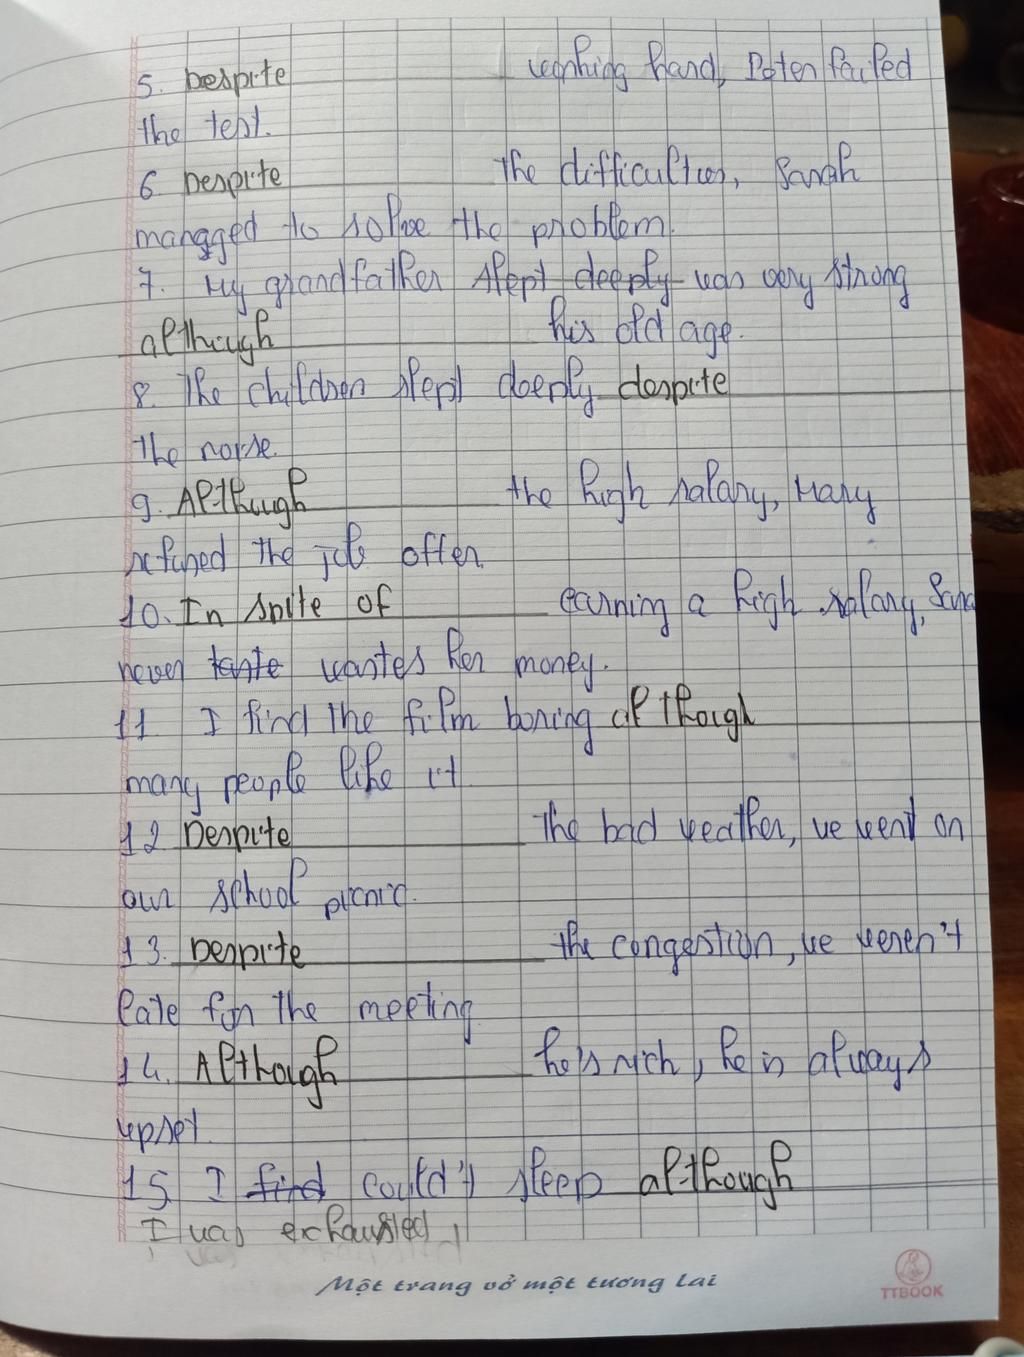 5. Despite working hard, Peter failed
the test.
6. Despite the difficulties, Sarah
managed to solve the problem.
7. My grandfather slept deeply was very strong
although his old age.
8. The children slept deeply despite
the noise.
9. Although the high salary, Mary
refused the job offer.
10. In spite of earning a high salary, Sara
never taste wastes her money.
11. I find the film boring although
many people like it
12. Despite the bad weather, we went on
our school picnic.
13. Despite the congestion, we weren't
late for the meeting
14. Although he's rich, he is always
upset.
15. I find could't sleep although
I was exhausted.
Một trang vở một tương lai
TTBOOK